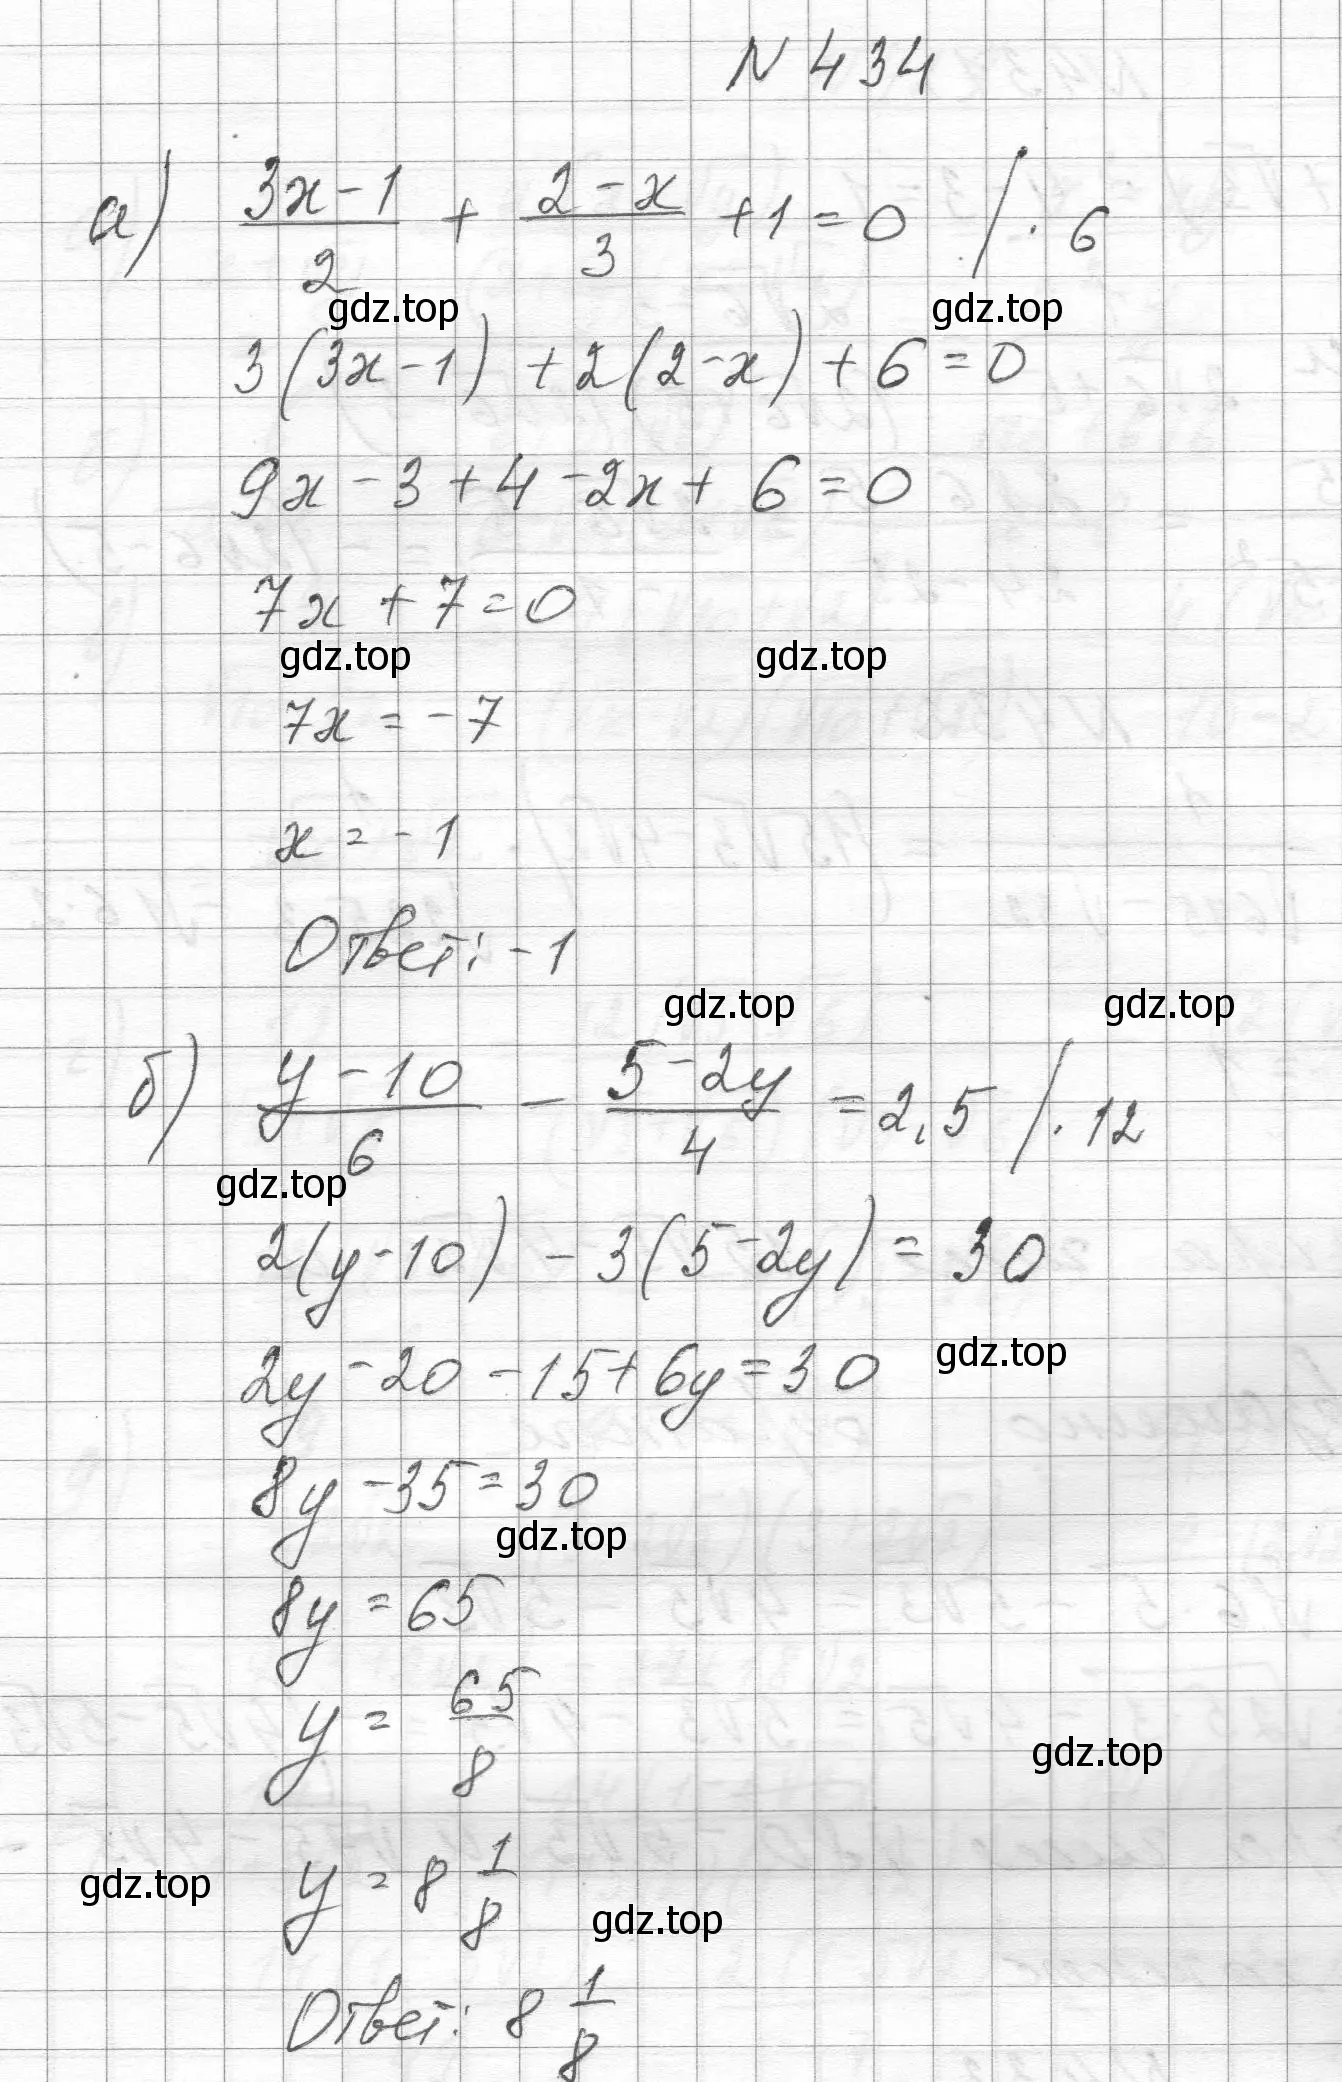 N 434
а) (3x-1)/2 + (2-x)/3 +1=0 /·6
gdz.top gdz.top
3(3x-1)+2(2-x)+6=0
9x-3+4-2x+6=0
7x+7=0
gdz.top gdz.top
7x=-7
x=-1
Ответ: -1
gdz.top gdz.top
б) (y-10)/6 - (5-2y)/4 =2,5 /·12
gdz.top
2(y-10)-3(5-2y)=30
gdz.top
2y-20-15+6y=30
8y-35=30
gdz.top
8y=65
y=65/8
gdz.top
y=8 1/8
gdz.top gdz.top
Ответ: 8 1/8